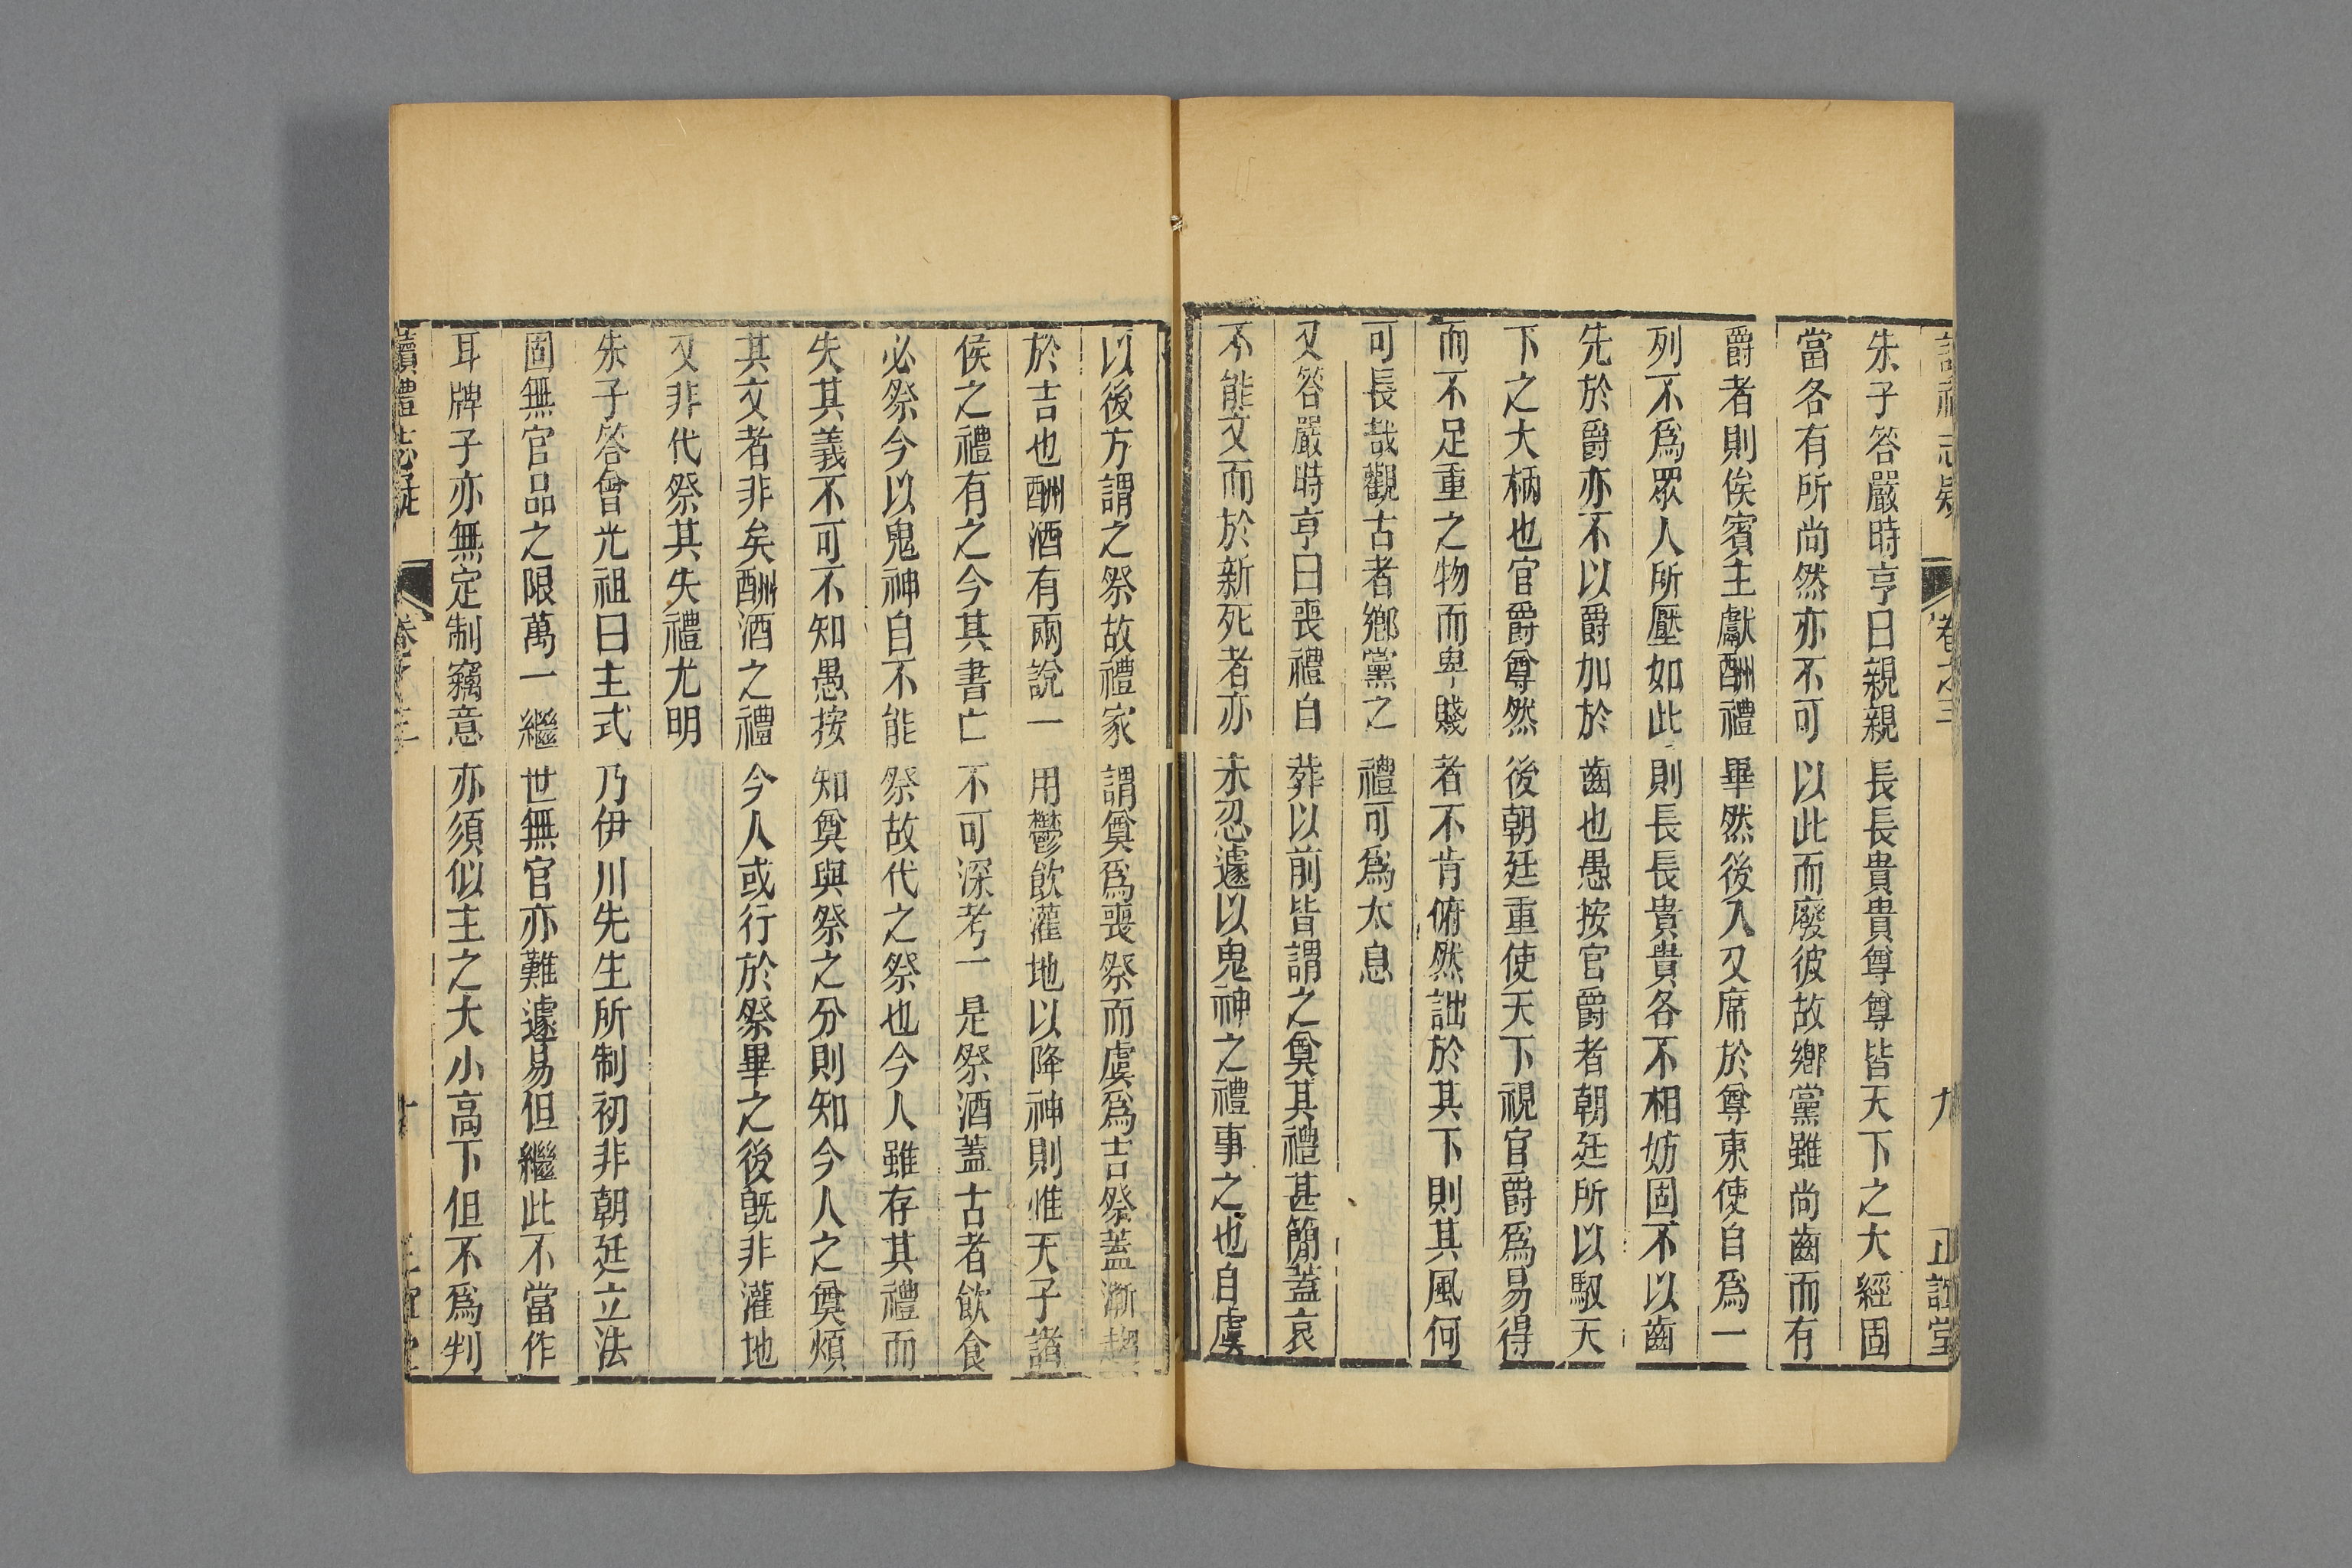 朱子答嚴時亨曰親親長長貴貴尊尊皆天下之大經固
當各有所尚然亦不可以此而廢彼故鄉黨雖尚齒而有
爵者則俟賓主獻酬禮畢然後入又席於尊東使自為一
列不為眾人所壓如此則長長貴貴各不相妨固不以齒
先於爵亦不以爵加於齒也愚按官爵者朝廷所以馭天
下之大柄也官爵尊然後朝廷重使天下視官爵為易得
而不足重之物而卑賤者不肯俯然詘於其下則其風何
可長哉觀古者鄉黨之禮可為太息
又答嚴時亨曰喪禮自葬以前皆謂之奠其禮甚簡蓋哀
不能文而於新死者亦未忍遽以鬼神之禮事之也自虞
以後方謂之祭故禮家謂奠為喪祭而虞為吉祭蓋漸趨
於吉也酬酒有兩說一用鬱飲灌地以降神則惟天子諸
侯之禮有之今其書亡不可深考一是祭酒蓋古者飲食
必祭今以鬼神自不能祭故代之祭也今人雖存其禮而
失其義不可不知愚按知奠與祭之分則知今人之奠煩
其文者非矣酬酒之禮今人或行於祭畢之後既非灌地
又非代祭其失禮尤明
朱子答曾光祖曰主式乃伊川先生所制初非朝廷立法
固無官品之限萬一繼世無官亦難遽易但繼此不當作
耳牌子亦無定制竊意亦須似主之大小高下但不為判
讀禮志疑 卷之三 十